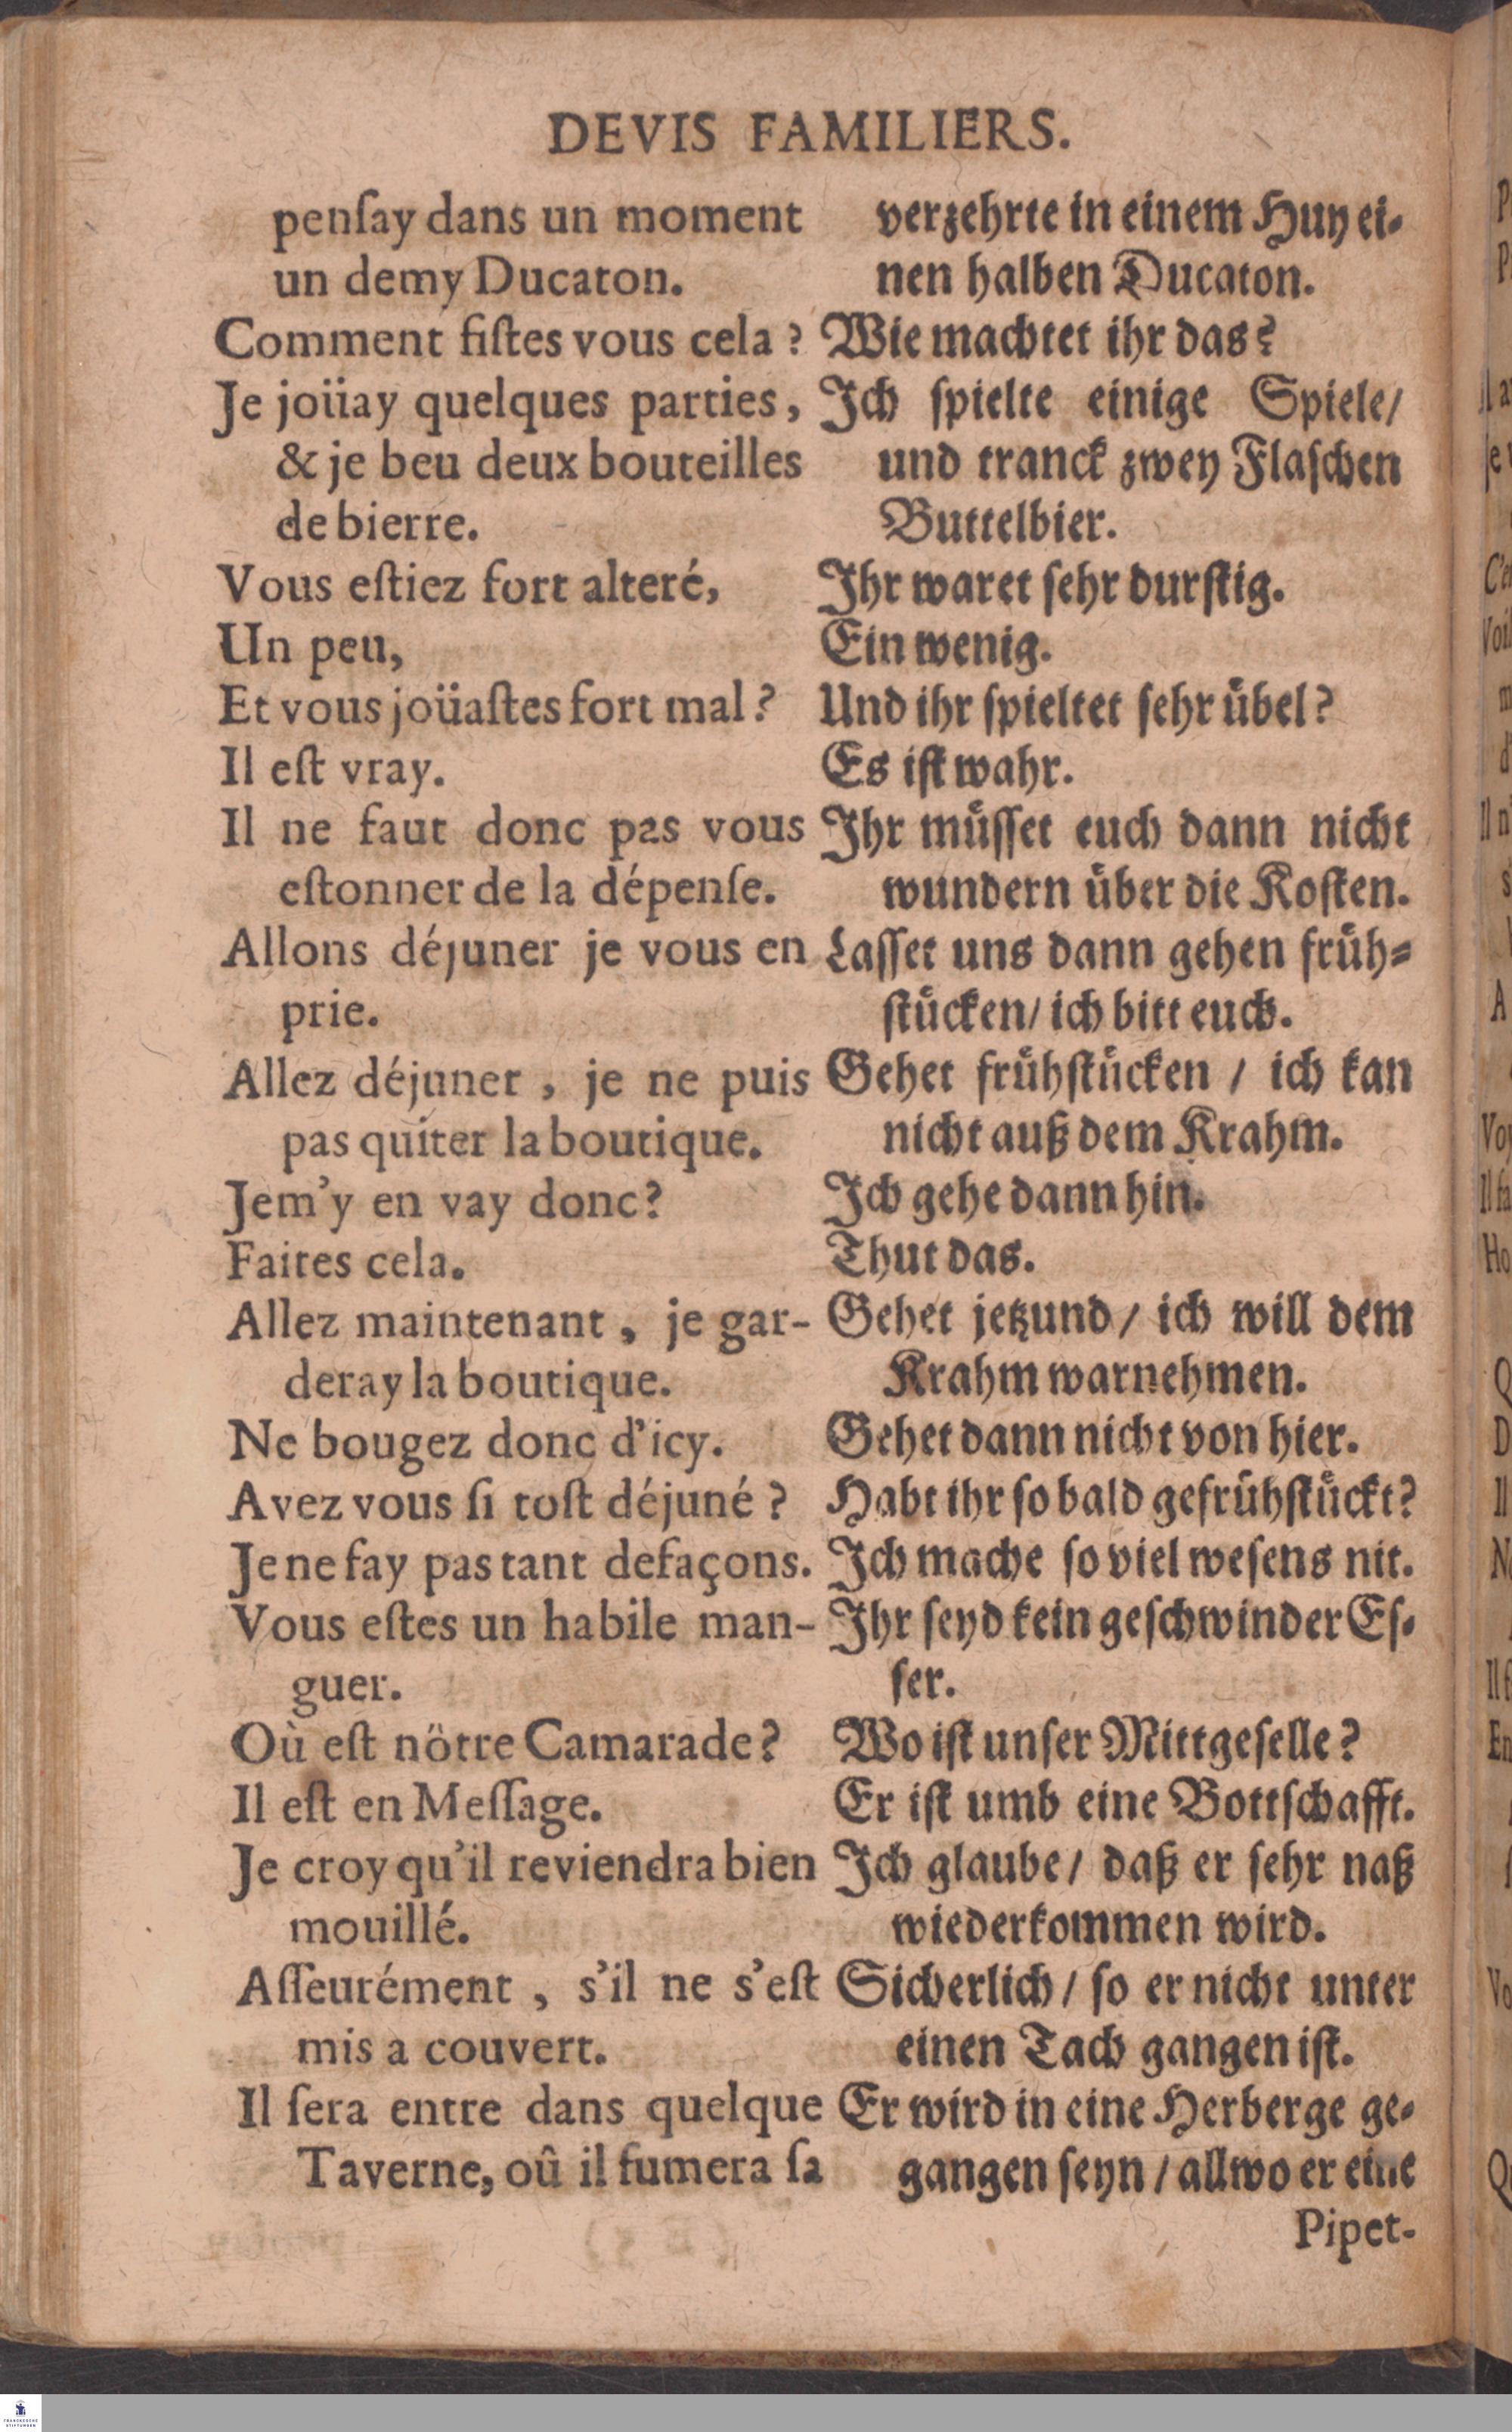 DEVIS FAMILIERS.
penſay dans un moment
un demy Ducaton.
Comment fiſtes vous cela ?
Je joüay quelques parties,
& je beu deux bouteilles
de bierre.
Vous eſtiez fort alteré,
Un peu,
Et vous joüaſtes fort mal ?
Il eſt vray.
Il ne faut donc pas vous
eſtonner de la dépenſe.
Allons déjuner je vous en
prie.
Allez déjuner , je ne puis
pas quiter la boutique.
Je m'y en vay donc ?
Faites cela.
Allez maintenant , je gar-
deray la boutique.
Ne bougez donc d'icy.
Avez vous ſi toſt déjuné ?
Je ne fay pas tant defaçons.
Vous eſtes un habile man-
guer.
Où eſt nötre Camarade ?
Il eſt en Meſſage.
Je croy qu'il reviendra bien
mouillé.
Aſſeurément , s'il ne s'eſt
mis a couvert.
Il ſera entre dans quelque
Taverne, oû il fumera ſa
verzehrte in einem Huy ei-
nen halben Ducaton.
Wie machtet ihr das?
Ich ſpielte einige Spiele/
und tranck zwey Flaſchen
Buttelbier.
Ihr waret ſehr durſtig.
Ein wenig.
Und ihr ſpieltet ſehr uͤbel?
Es iſt wahr.
Ihr muͤſſet euch dann nicht
wundern uͤber die Koſten.
Laſſet uns dann gehen fruͤh-
ſtuͤcken/ ich bitt euch.
Gehet fruͤhſtuͤcken / ich kan
nicht auß dem Krahm.
Ich gehe dann hin.
Thut das.
Gehet jetzund / ich will dem
Krahm warnehmen.
Gehet dann nicht von hier.
Habt ihr ſo bald gefruͤhſtuͤckt?
Ich mache ſo viel weſens nit.
Ihr ſeyd kein geſchwinder Eſ-
ſer.
Wo iſt unſer Mittgeſelle?
Er iſt umb eine Bottſchafft.
Ich glaube / daß er ſehr naß
wiederkommen wird.
Sicherlich / ſo er nicht unter
einen Tach gangen iſt.
Er wird in eine Herberge ge-
gangen ſeyn / allwo er eine
Pipet-
FRANCKESCHE
STIFTUNGEN